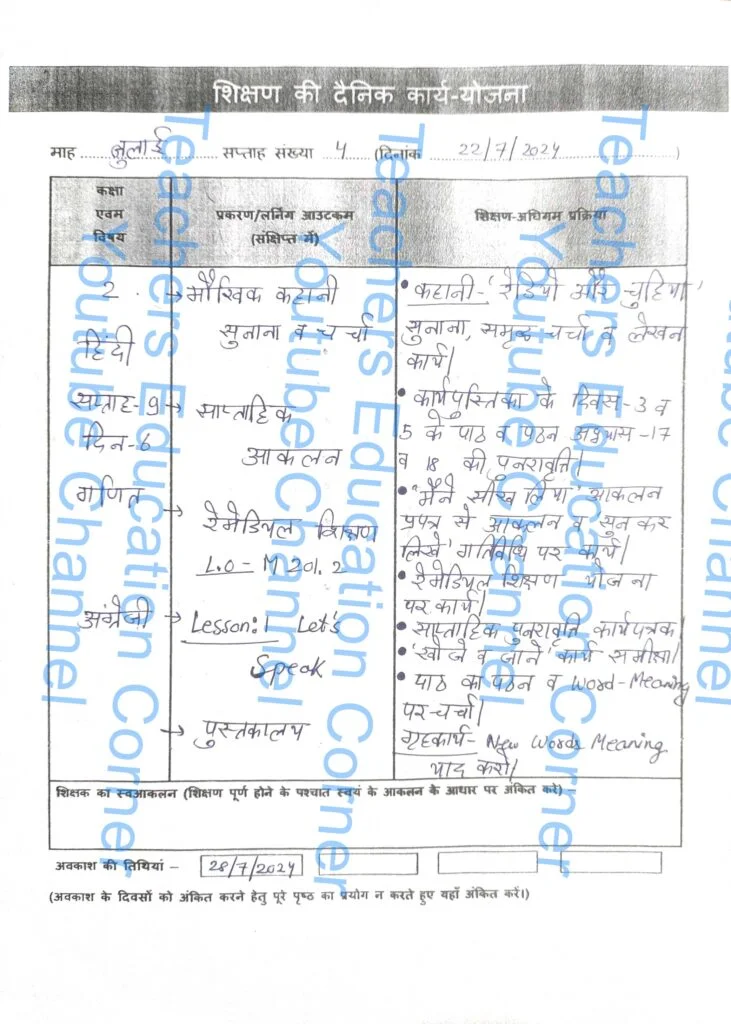 शिक्षण की दैनिक कार्य-योजना
माह ........ जुलाई ........ सप्ताह संख्या .... 4 .... (दिनांक ........ 22/7/2024 ........)
कक्षा
एवम
विषय
प्रकरण/लर्निंग आउटकम
(संक्षिप्त में)
शिक्षण-अधिगम प्रक्रिया
2
हिंदी
सप्ताह-9
दिन-6
गणित
अंग्रेजी
→ मौखिक कहानी
सुनाना व चर्चा
→ साप्ताहिक
आकलन
→ रेमेडियल शिक्षण
L.O - M 201.2
→ Lesson:1 Let's
Speak
→ पुस्तकालय
• कहानी- 'रेडियो और चुहिया'
सुनाना, समूह चर्चा व लेखन
कार्य।
• कार्यपुस्तिका के दिवस-3 व
5 के पाठ व पठन अभ्यास-17
व 18 की पुनरावृत्ति।
• 'मैंने सीख लिया' आकलन
प्रपत्र से आकलन व सुनकर
लिखे' गतिविधि पर कार्य।
• रेमेडियल शिक्षण योजना
पर कार्य।
• साप्ताहिक पुनरावृत्ति कार्यपत्रक।
• 'खोजे व जाने' कार्य समीक्षा।
• पाठ का पठन व Word-Meaning
पर चर्चा।
गृहकार्य- New Words Meaning
याद करो।
शिक्षक का स्वआकलन (शिक्षण पूर्ण होने के पश्चात स्वयं के आकलन के आधार पर अंकित करे) –
अवकाश की तिथियां – 28/7/2024
(अवकाश के दिवसों को अंकित करने हेतु पूरे पृष्ठ का प्रयोग न करते हुए यहाँ अंकित करें।)
Teachers Education Corner
Youtube Channel
Teachers Education Corner
Youtube Channel
Teachers Education Corner
Youtube Channel